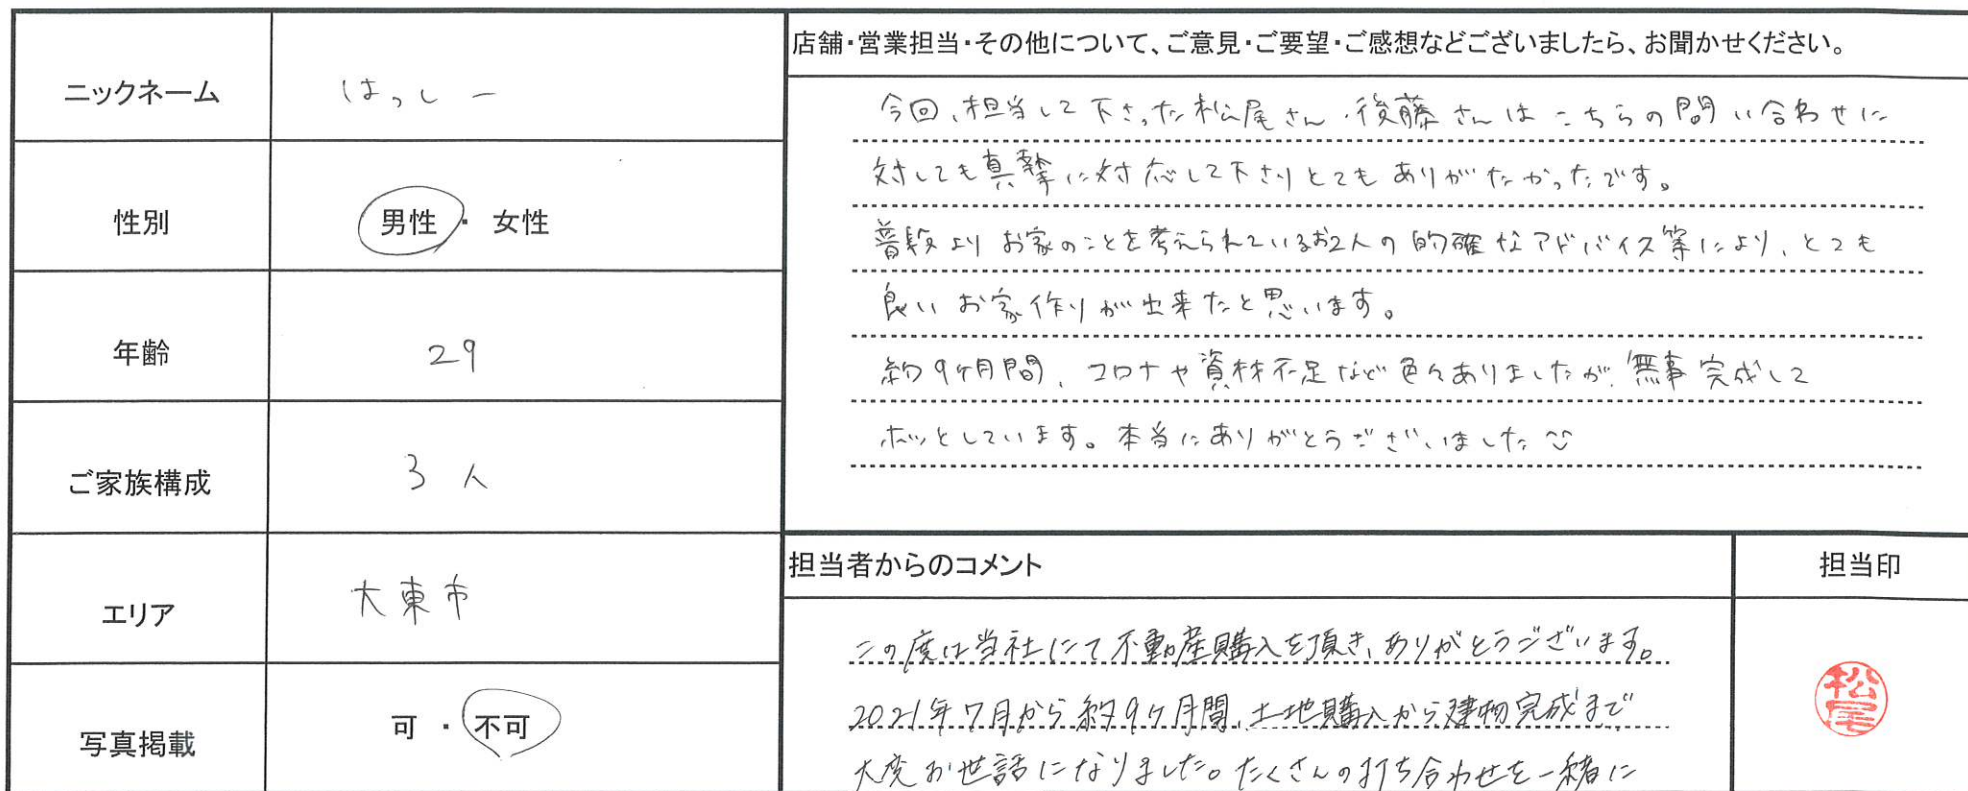 ニックネーム
はっしー
性別
男性・女性
年齢
29
ご家族構成
3人
エリア
大東市
写真掲載
可・不可
店舗・営業担当・その他について、ご意見・ご要望・ご感想などございましたら、お聞かせください。
今回、担当して下さった松尾さん・後藤さんはこちらの問い合わせに
対しても真摯に対応して下さりとてもありがたかったです。
普段よりお家のことを考えられているお2人の的確なアドバイス等により、とても
良いお家作りが出来たと思います。
約9ヶ月間、コロナや資材不足など色々ありましたが、無事完成して
ホッとしています。本当にありがとうございました^^
担当者からのコメント
この度は当社にて不動産購入を頂き、ありがとうございます。
2021年7月から約9ヶ月間、土地購入から建物完成まで
大変お世話になりました。たくさんの打ち合わせを一緒に
担当印
松尾